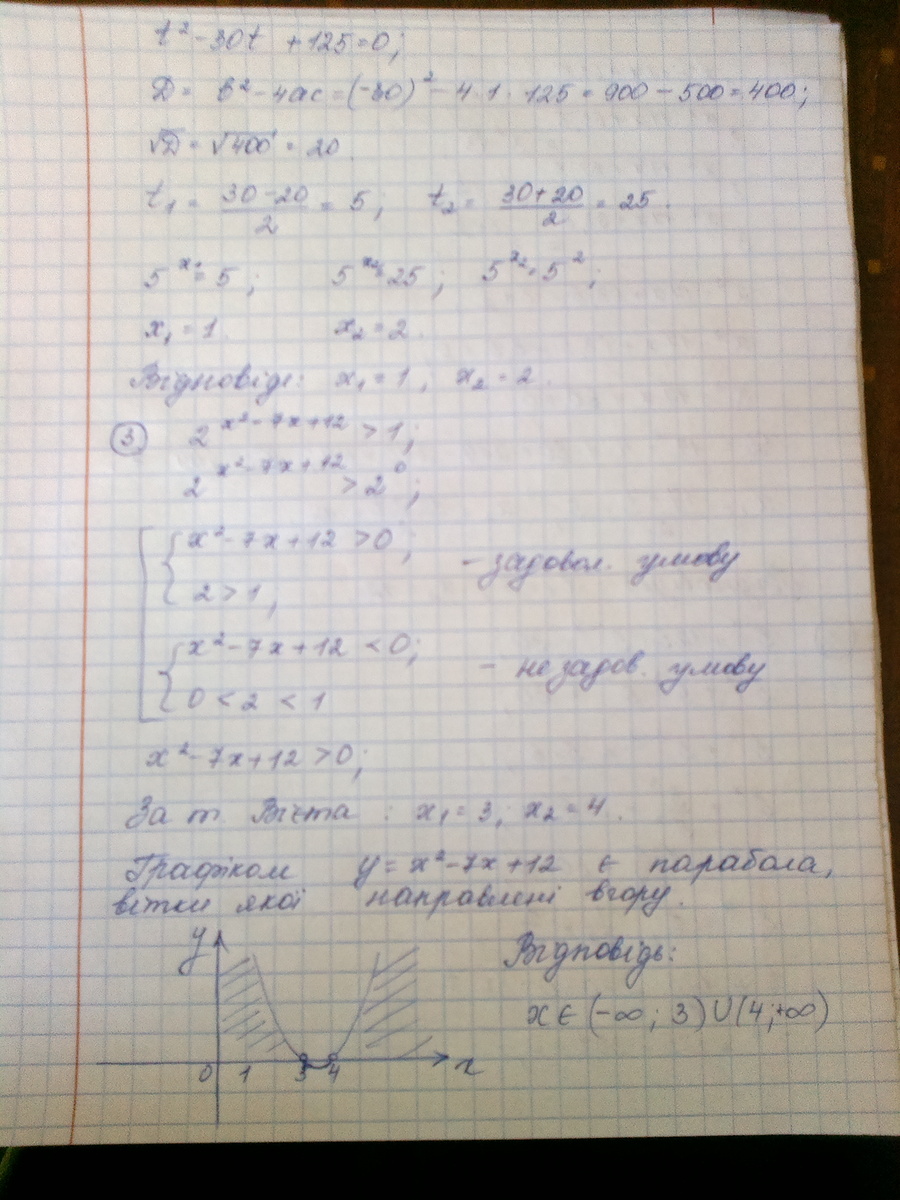 t² - 30t + 125 = 0;
D = b² - 4ac = (-30)² - 4·1·125 = 900 - 500 = 400;
√D = √400 = 20.
t₁ = (30-20)/2 = 5; t₂ = (30+20)/2 = 25.
5^x₁ = 5; 5^x₂ = 25; 5^x₂ = 5²;
x₁ = 1. x₂ = 2.
Відповідь: x₁ = 1, x₂ = 2.
3. 2^(x²-7x+12) > 1;
2^(x²-7x+12) > 2⁰;
x² - 7x + 12 > 0; - задовол. умову
2 > 1,
x² - 7x + 12 < 0; - не задов. умову
0 < 2 < 1
x² - 7x + 12 > 0;
За т. Вієта: x₁ = 3; x₂ = 4.
Графіком y = x² - 7x + 12 є парабола,
вітки якої направлені вгору.
y Відповідь:
x ∈ (-∞; 3) ∪ (4; +∞)
0 1 3 4 x